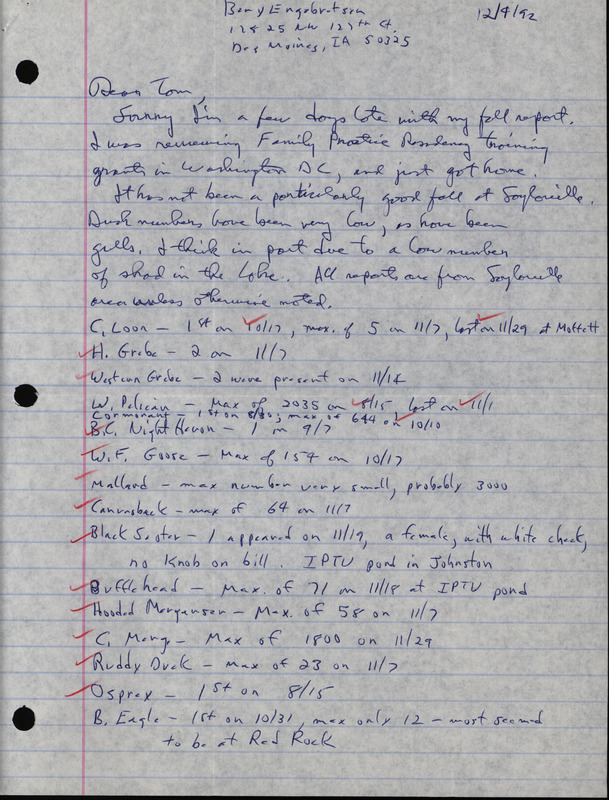 Bery Engebretsen
12825 NW 127th Ct.
Des Moines, IA 50325
12/4/92
Dear Tom,
Sorry I'm a few days late with my fall report.
I was reviewing Family Practice Residency training
grants in Washington DC, and just got home.
It has not been a particularly good fall at Saylorville.
Duck numbers have been very low, as have been
gulls. I think in part due to a low number
of shad in the Lake. All reports are from Saylorville
area unless otherwise noted.
C. Loon - 1st on 10/17, max. of 5 on 11/7, last on 11/29 at Moffett
H. Grebe - 2 on 11/7
Western Grebe - 2 were present on 11/14
W. Pelican - Max of 2035 on 8/15 last on 11/1
Cormorant - 1st on 8/30; max of 644 on 10/10
B.C. Night Heron - 1 on 9/7
W.F. Goose - Max of 154 on 10/17
Mallard - max number very small, probably 3000
Canvasback - max of 64 on 11/7
Black Scoter - 1 appeared on 11/19, a female, with white cheek,
no knob on bill. IPTV pond in Johnston
Bufflehead - Max. of 71 on 11/18 at IPTV pond
Hooded Merganser - Max. of 58 on 11/7
C. Merg - Max of 1800 on 11/29
Ruddy Duck - max of 23 on 11/7
Osprey - 1st on 8/15
B. Eagle - 1st on 10/31, max only 12 - most seemed
to be at Red Rock